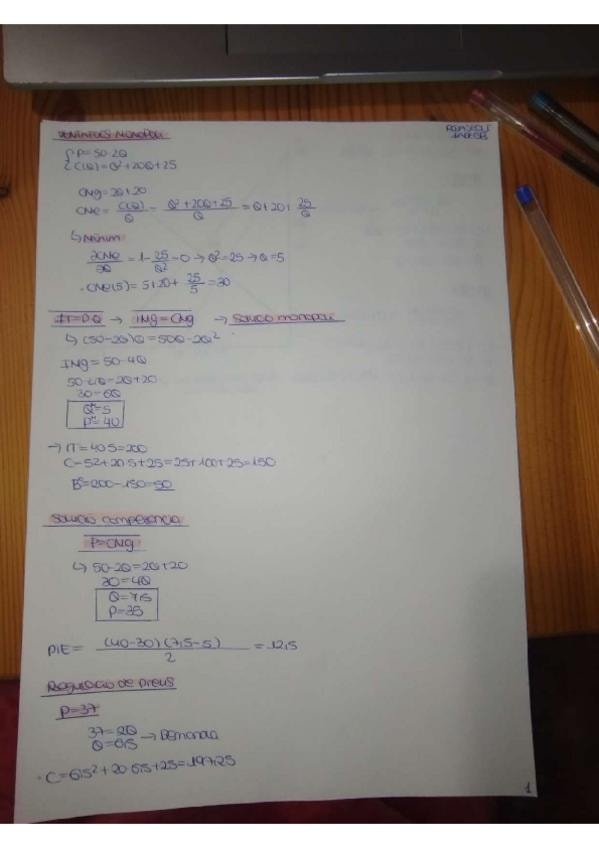 P=50-2Q
C(Q)=Q²+20Q+25
CMg=2Q+20
CMe = C(Q)/Q = Q²+20Q+25/Q = Q+20+ 25/Q
↳ Mínim
∂CMe/∂Q = 1- 25/Q² =0 → Q²=25 → Q=5
· CMe(5) = 5+20+ 25/5 =30
IT=P·Q → IMg=CMg → Solució monopoli
↳ (50-2Q)Q = 50Q-2Q²
IMg = 50-4Q
50-4Q=2Q+20
30=6Q
Q*=5
P*=40
→ IT=40·5=200
C=5²+20·5+25=25+100+25=150
B*=200-150=50
Solució competència
P=CMg
↳ 50-2Q=2Q+20
30=4Q
Q=7,5
P=35
PIE = (40-30)(7,5-5)/2 = 12,5
Regulació de preus
P=37
Q=6,5 → Demanda
· C=6,5²+20·6,5+25=197,25
1